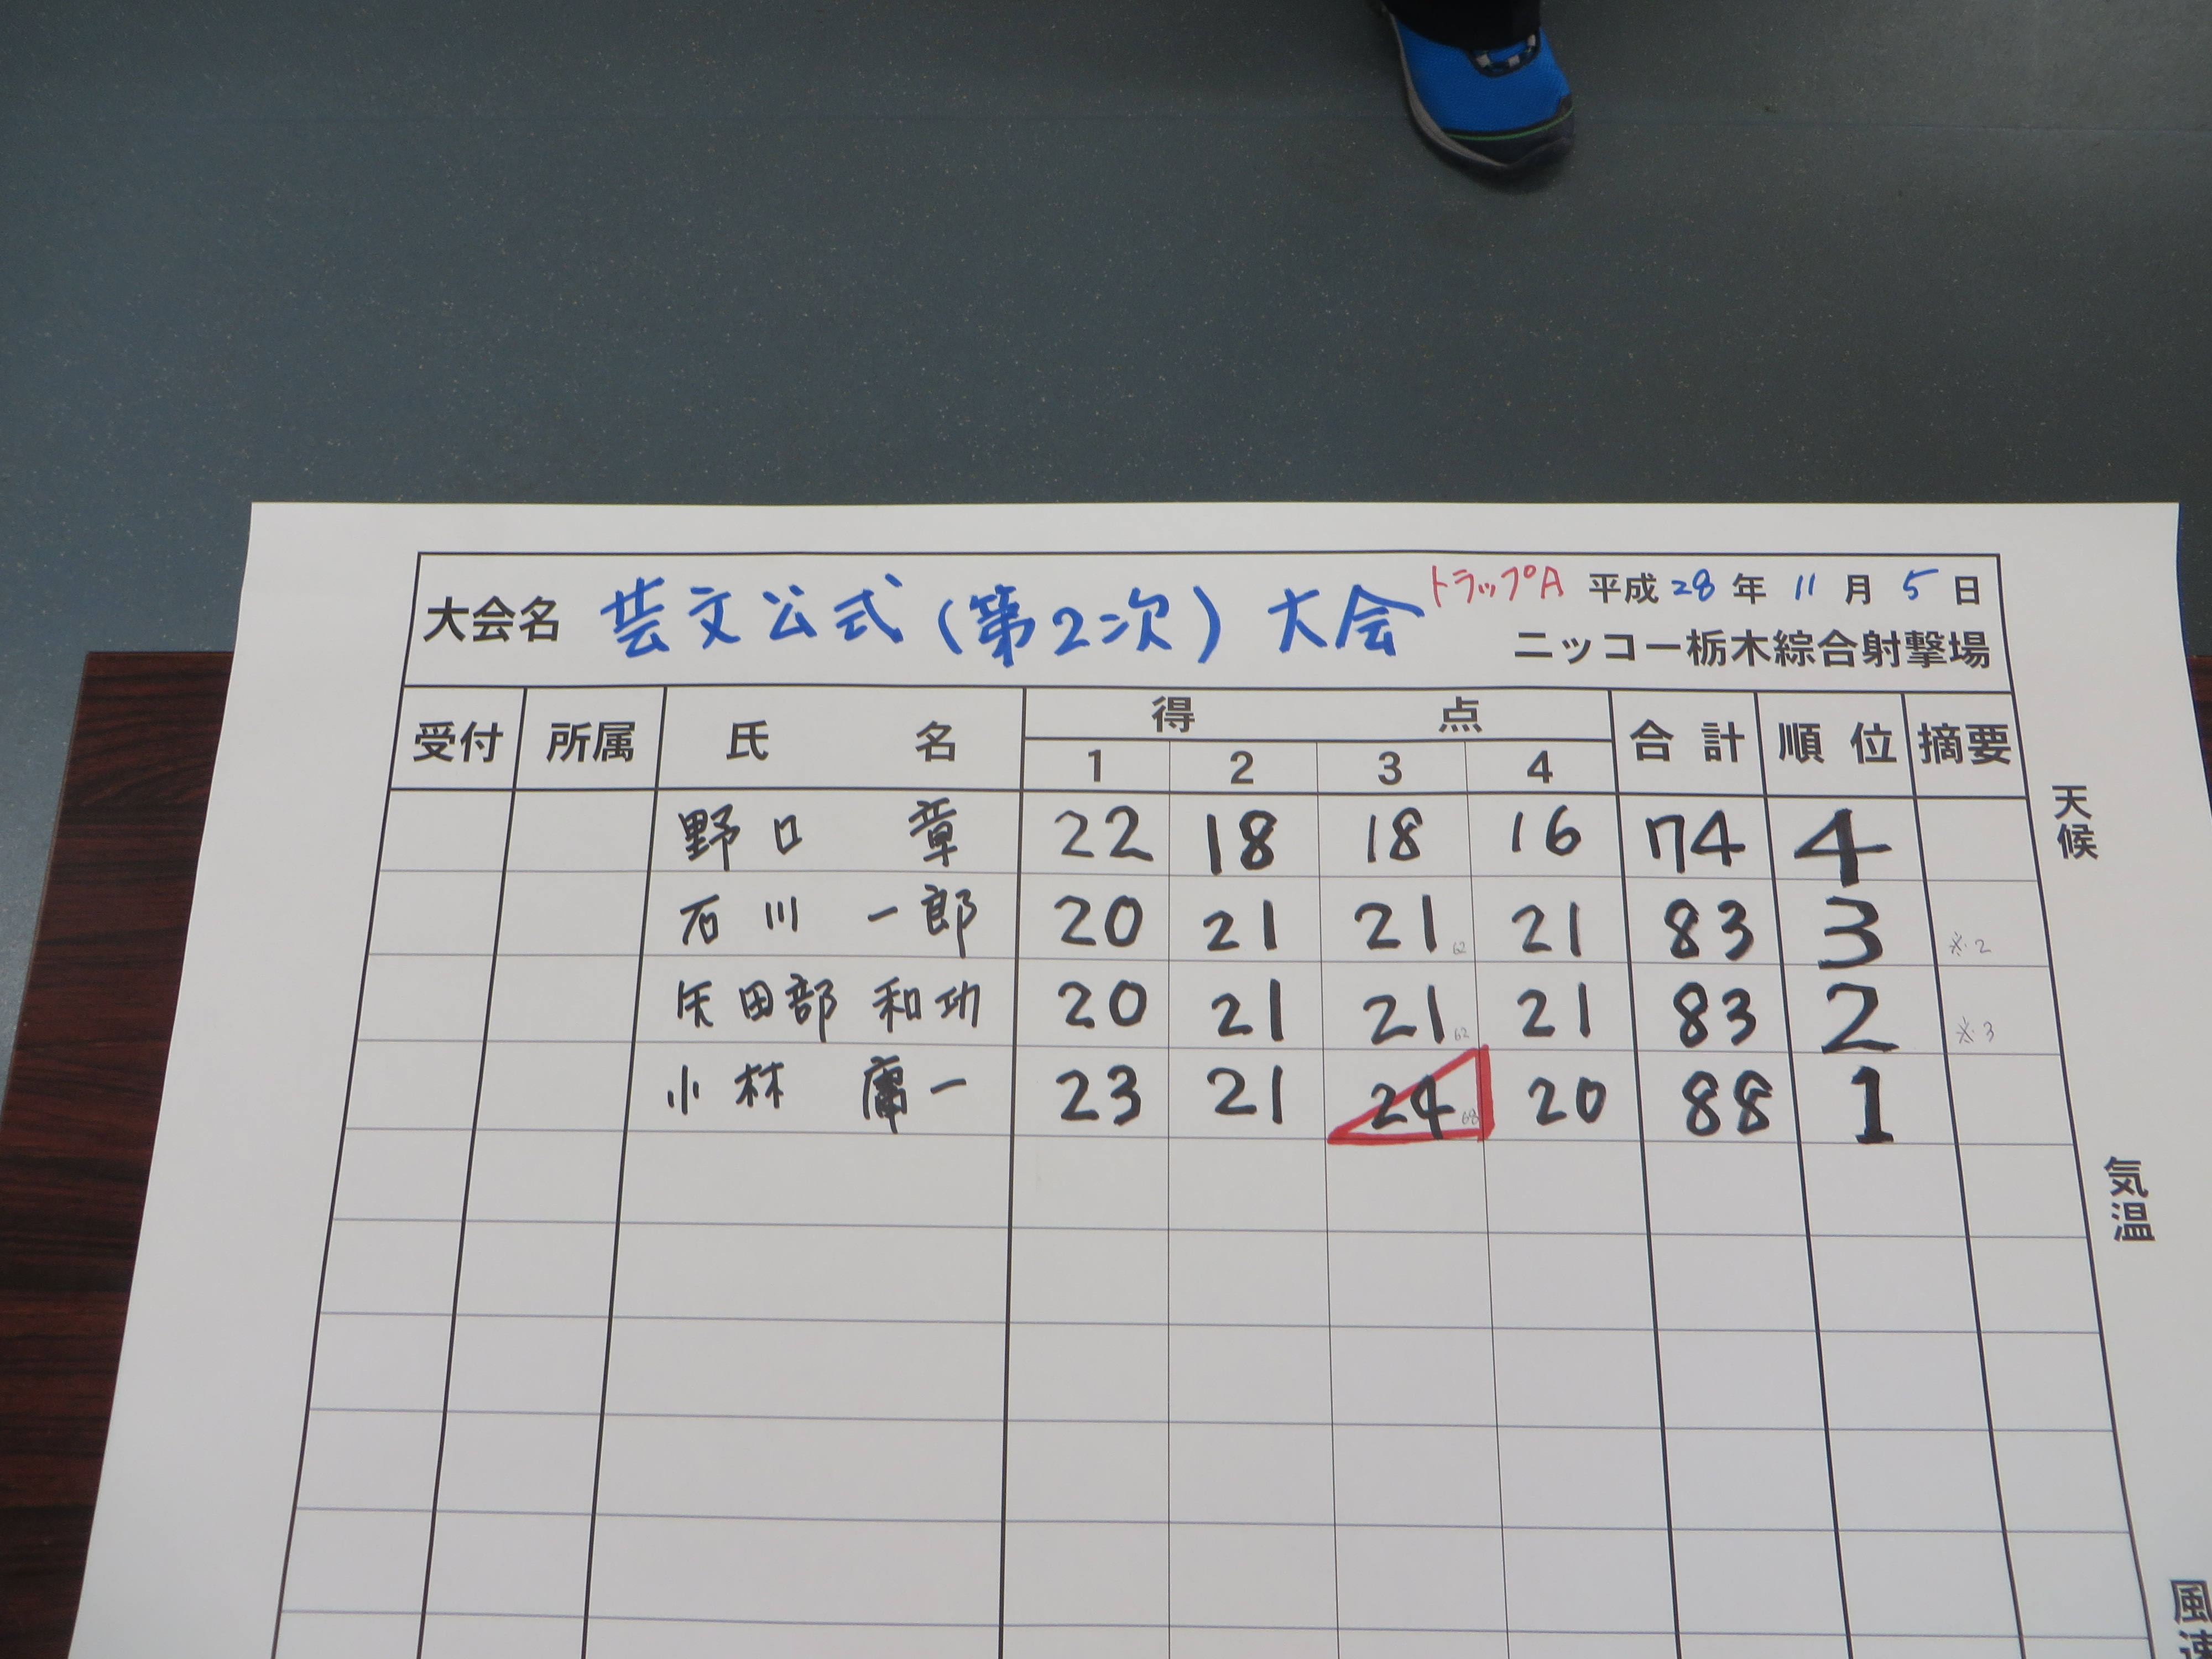 大会名 芸文公式(第2次)大会 トラップA 平成28年11月5日
ニッコー栃木綜合射撃場
受付 所属 氏名 得点 合計 順位 摘要
1 2 3 4
野口 章 22 18 18 16 74 4
石川 一郎 20 21 21 62 21 83 3 ※2
矢田部 和功 20 21 21 62 21 83 2 ※3
小林 庸一 23 21 24 68 20 88 1
天候
気温
風速